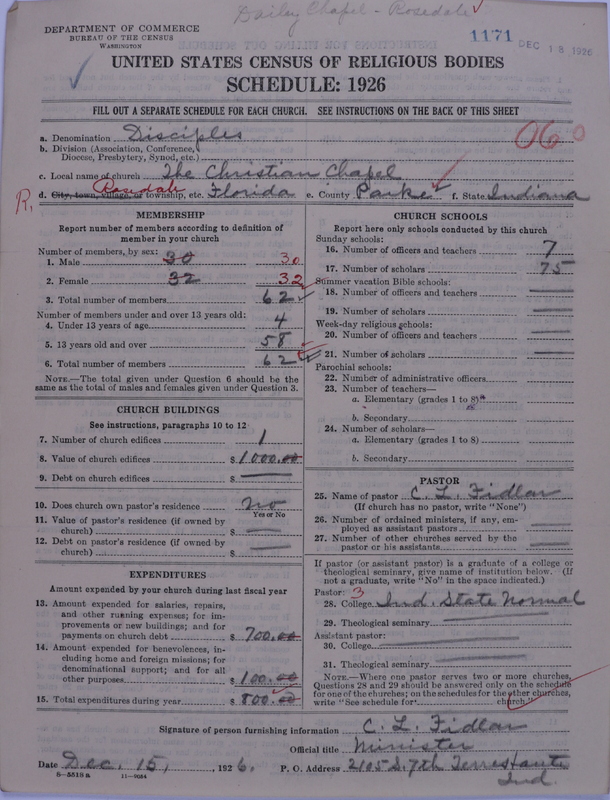 Dailey Chapel - Rosedale
DEPARTMENT OF COMMERCE
BUREAU OF THE CENSUS
WASHINGTON
1171
DEC 18 1926
UNITED STATES CENSUS OF RELIGIOUS BODIES
SCHEDULE: 1926
FILL OUT A SEPARATE SCHEDULE FOR EACH CHURCH. SEE INSTRUCTIONS ON THE BACK OF THIS SHEET
a. Denomination Disciples
060
b. Division (Association, Conference,
Diocese, Presbytery, Synod, etc.)
c. Local name of church The Christian Chapel
R. Rosedale
d. City, town, village, or township, etc. Florida e. County Parke f. State Indiana
MEMBERSHIP
Report number of members according to definition of
member in your church
Number of members, by sex:
1. Male 30 30
2. Female 32 32
3. Total number of members 62
Number of members under and over 13 years old:
4. Under 13 years of age 4
5. 13 years old and over 58
6. Total number of members 62
NOTE.—The total given under Question 6 should be the
same as the total of males and females given under Question 3.
CHURCH BUILDINGS
See instructions, paragraphs 10 to 12
7. Number of church edifices 1
8. Value of church edifices $ 1000.00
9. Debt on church edifices $
10. Does church own pastor's residence No
Yes or No
11. Value of pastor's residence (if owned by
church) $
12. Debt on pastor's residence (if owned by
church) $
EXPENDITURES
Amount expended by your church during last fiscal year
13. Amount expended for salaries, repairs,
and other running expenses; for im-
provements or new buildings; and for
payments on church debt $ 700.00
14. Amount expended for benevolences, in-
cluding home and foreign missions; for
denominational support; and for all
other purposes $ 100.00
15. Total expenditures during year $ 800.00
CHURCH SCHOOLS
Report here only schools conducted by this church
Sunday schools:
16. Number of officers and teachers 7
17. Number of scholars 75
Summer vacation Bible schools:
18. Number of officers and teachers
19. Number of scholars
Week-day religious schools:
20. Number of officers and teachers
21. Number of scholars
Parochial schools:
22. Number of administrative officers
23. Number of teachers—
a. Elementary (grades 1 to 8)
b. Secondary
24. Number of scholars—
a. Elementary (grades 1 to 8)
b. Secondary
PASTOR
25. Name of pastor C. L. Fidlar
(If church has no pastor, write "None")
26. Number of ordained ministers, if any, em-
ployed as assistant pastors
27. Number of other churches served by the
pastor or his assistants
If pastor (or assistant pastor) is a graduate of a college or
theological seminary, give name of institution below. (If
not a graduate, write "No" in the space indicated.)
Pastor: 3
28. College Ind. State Normal
29. Theological seminary
Assistant pastor:
30. College
31. Theological seminary
NOTE.—Where one pastor serves two or more churches,
Questions 28 and 29 should be answered only on the schedule
for one of the churches; on the schedules for the other churches,
write "See schedule for church."
Signature of person furnishing information C. L. Fidlar
Official title Minister
Date Dec. 15, 1926. P. O. Address 2105 S. 7th Terre Haute
8-5518 a 11-9034
Ind.